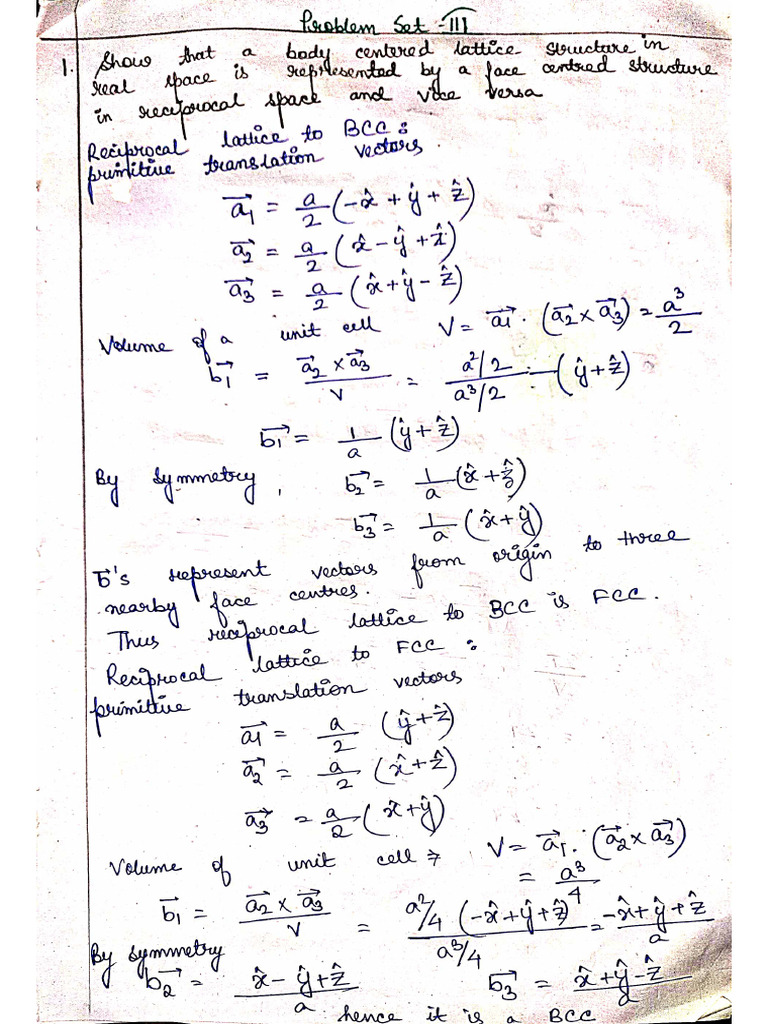 Problem Set - III
1. Show that a body centered lattice structure in
real space is represented by a face centred structure
in reciprocal space and vice versa
Reciprocal lattice to BCC :
primitive translation vectors.
a₁⃗ = a/2 (-x̂ + ŷ + ẑ)
a₂⃗ = a/2 (x̂ - ŷ + ẑ)
a₃⃗ = a/2 (x̂ + ŷ - ẑ)
Volume of a unit cell V = a₁⃗ . (a₂⃗ × a₃⃗) = a³/2
b₁⃗ = (a₂⃗ × a₃⃗)/V = (a²/2)/(a³/2) (ŷ + ẑ)
b₁⃗ = 1/a (ŷ + ẑ)
By symmetry, b₂⃗ = 1/a (x̂ + ẑ)
b₃⃗ = 1/a (x̂ + ŷ)
b⃗'s represent vectors from origin to three
nearby face centres.
Thus reciprocal lattice to BCC is FCC.
Reciprocal lattice to FCC :
primitive translation vectors
a₁⃗ = a/2 (ŷ + ẑ)
a₂⃗ = a/2 (x̂ + ẑ)
a₃⃗ = a/2 (x̂ + ŷ)
Volume of unit cell ⇒ V = a₁⃗ . (a₂⃗ × a₃⃗)
= a³/4
b₁⃗ = (a₂⃗ × a₃⃗)/V = a²/4 (-x̂ + ŷ + ẑ)/(a³/4) = (-x̂ + ŷ + ẑ)/a
By symmetry
b₂⃗ = (x̂ - ŷ + ẑ)/a b₃⃗ = (x̂ + ŷ - ẑ)/a
hence it is a BCC